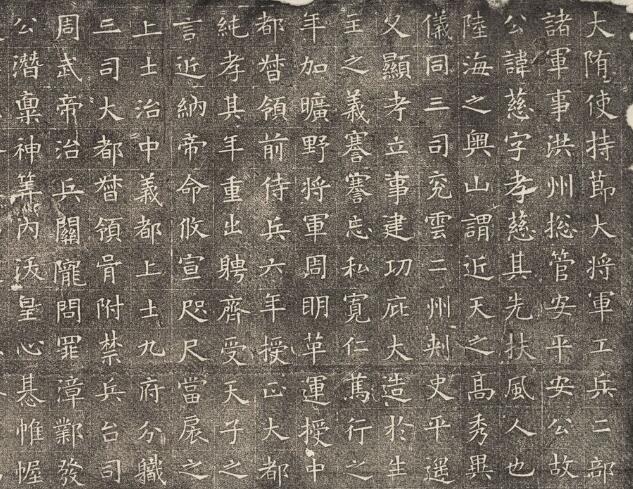 大隋使持節大將軍工兵二部
諸軍事洪州捴管安平安公故
公諱慈字孝慈其先扶風人也
陸海之奧山謂近天之髙秀異
儀同三司兖雲二州刾史平遥
父顯孝立事建功庇大造於生
主之義謇謇忘私寬仁篤行之
年加曠野將軍周明革運授中
都督領前侍兵六年授正大都
純孝其年重出聘齊受天子之
言近納帝命攸宣咫尺當扆之
上士治中義都上士九府分職
三司大都督領胥附禁兵台司
周武帝治兵關隴問罪漳鄴發
公潛稟神筭內沃皇心惎帷幄